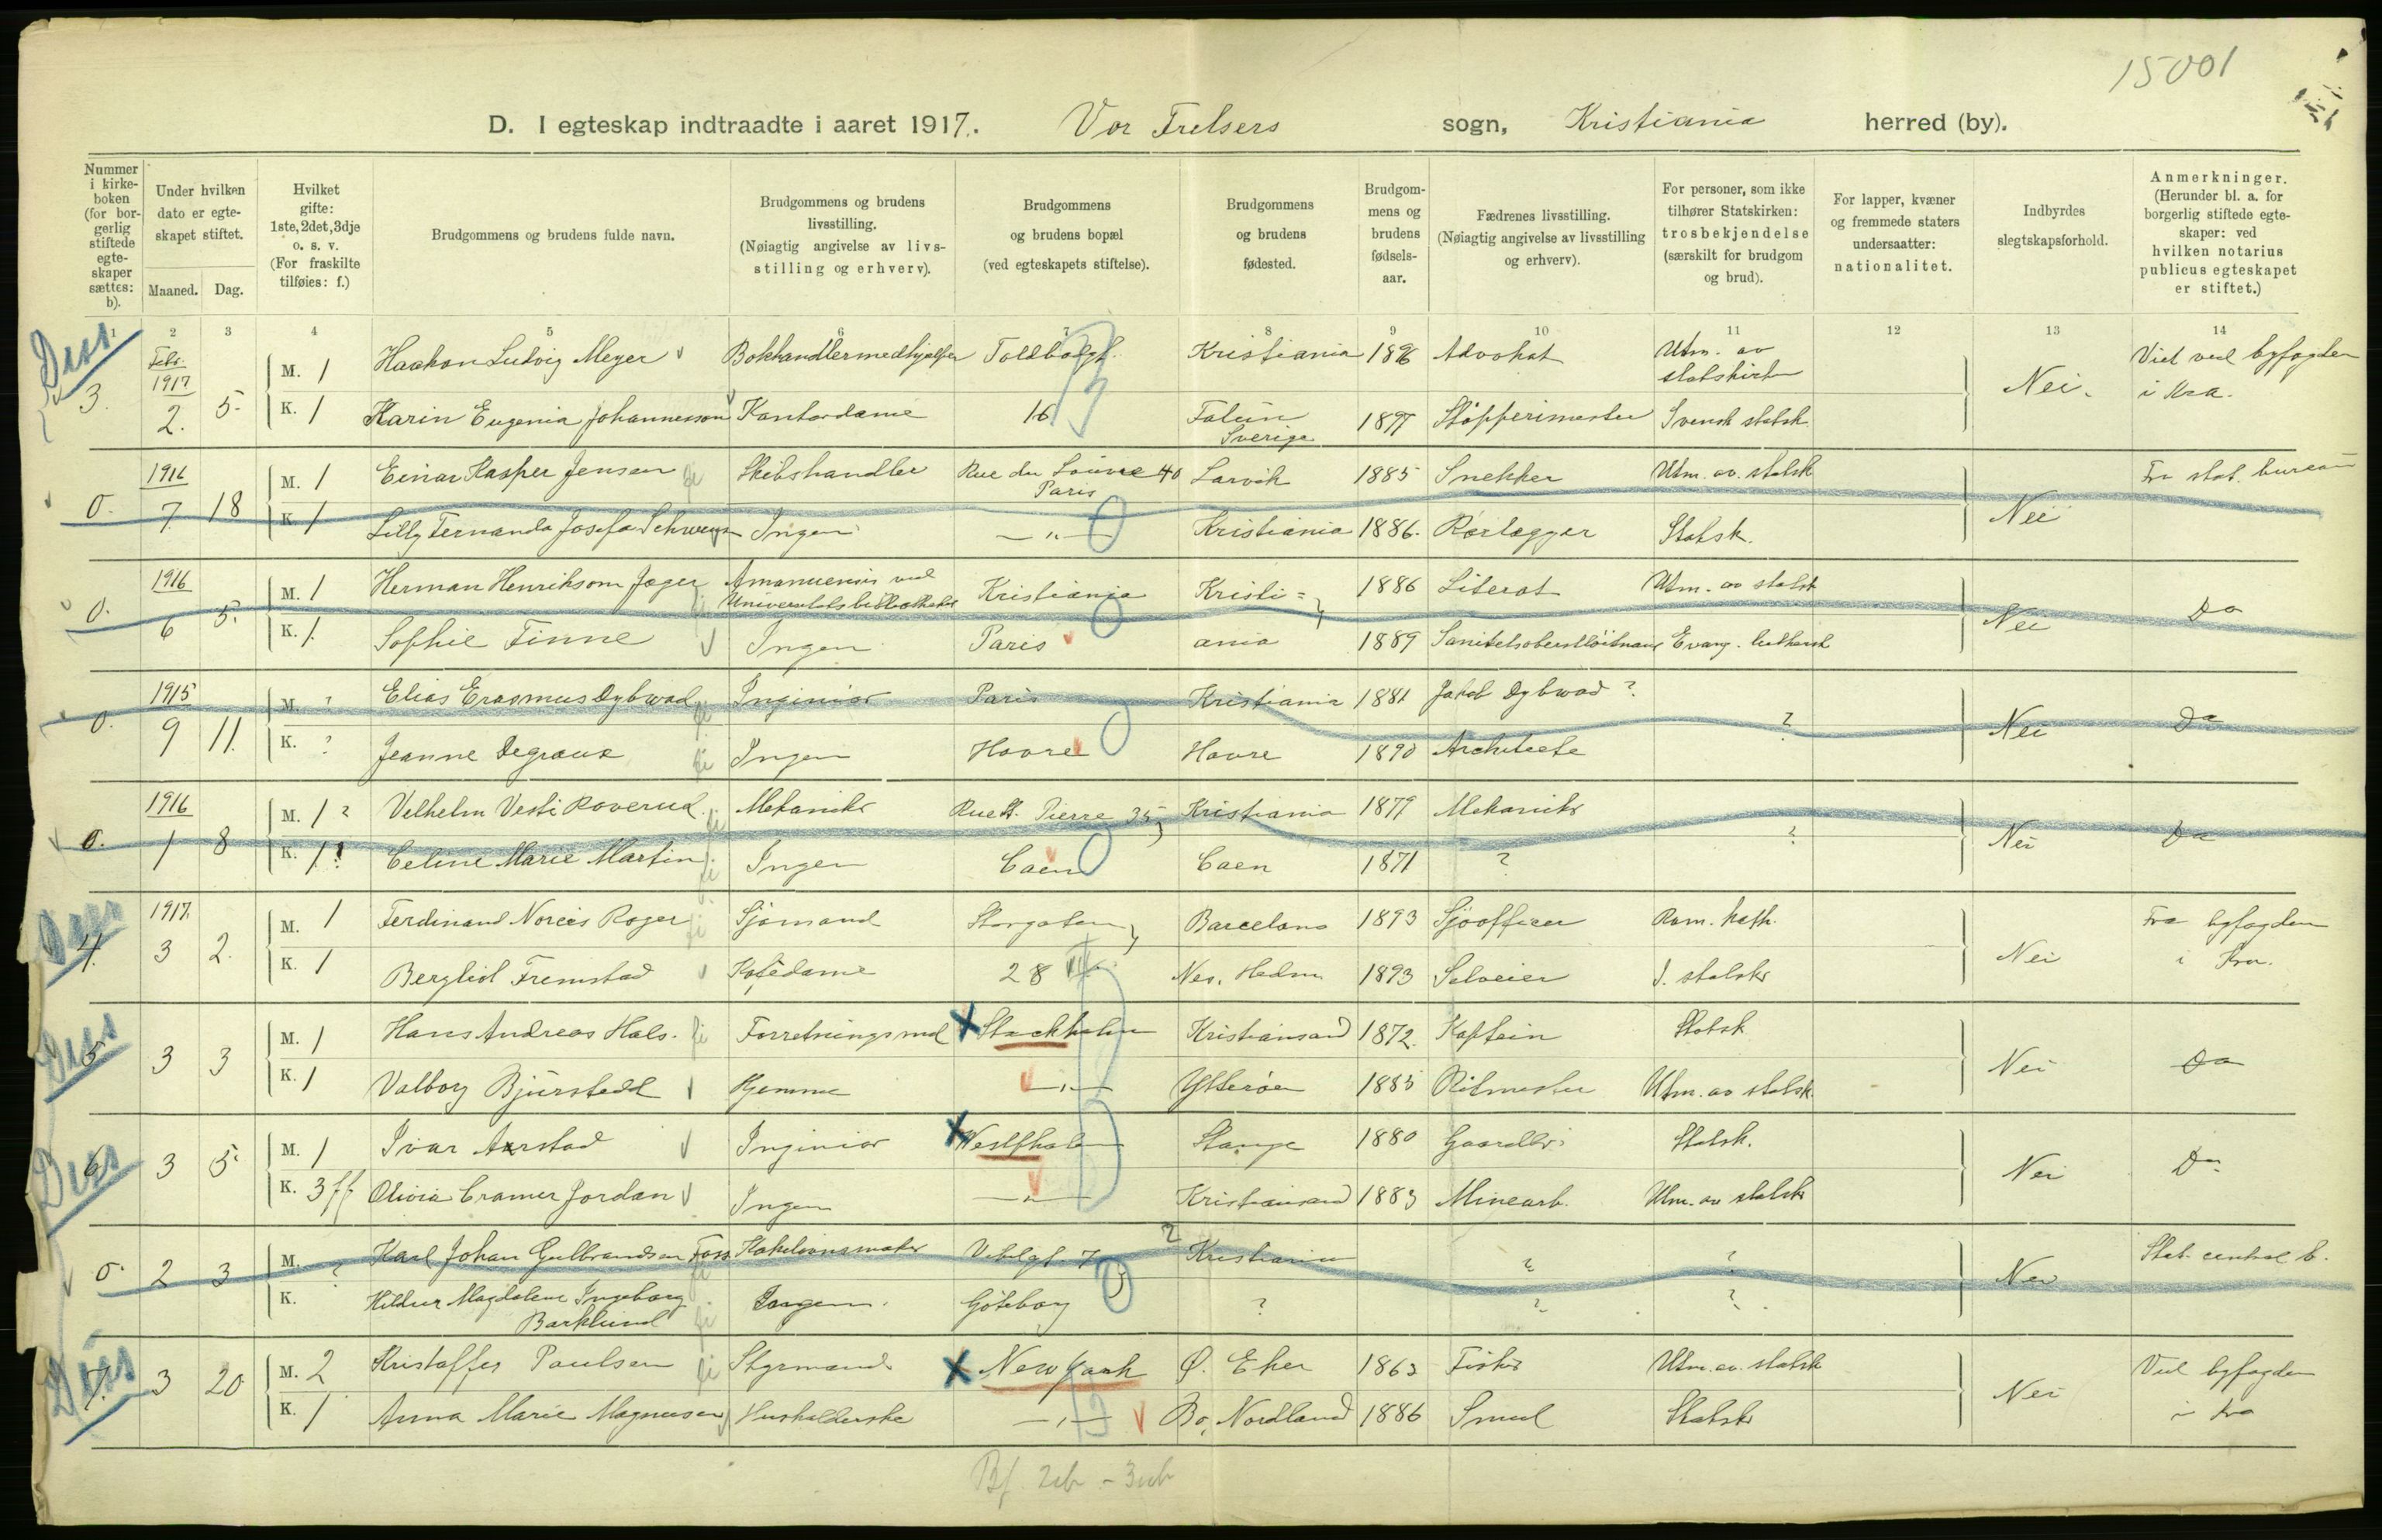 15001
D. I egteskap indtraadte i aaret 1917. Vor Frelsers sogn, Kristiania herred (by).
Nummer i kirkeboken (for borgerlig stiftede egteskaper sættes: b).
Under hvilken dato er egteskapet stiftet.
Maaned. Dag.
Hvilket gifte: 1ste, 2det, 3dje o. s. v. (For fraskilte tilføies: f.)
Brudgommens og brudens fulde navn.
Brudgommens og brudens livsstilling. (Nøiagtig angivelse av livsstilling og erhverv).
Brudgommens og brudens bopæl (ved egteskapets stiftelse).
Brudgommens og brudens fødested.
Brudgommens og brudens fødselsaar.
Fædrenes livsstilling. (Nøiagtig angivelse av livsstilling og erhverv).
For personer, som ikke tilhører Statskirken: trosbekjendelse (særskilt for brudgom og brud).
For lapper, kvæner og fremmede staters undersaatter: nationalitet.
Indbyrdes slegtskapsforhold.
Anmerkninger. (Herunder bl. a. for borgerlig stiftede egteskaper: ved hvilken notarius publicus egteskapet er stiftet.)
1 2 3 4 5 6 7 8 9 10 11 12 13 14
Diss. 3. Febr. 1917 2. 5. M. 1 Haakon Ludvig Meyer Bokhandlermedhjælper Toldbodgt. Kristiania 1896 Advokat Utm. av statskirken Nei. Viet ved byfogden i Kra.
K. 1 Karin Eugenia Johannesson Kontordame 16 Falun Sverige 1897 Støpperimester Svensk statsk.
0. 1916 7. 18 M. 1 Einar Kasper Jensen Skibshandler Rue du Louvre 40 Paris Larvik 1885 Snekker Utm. av. statsk Nei Fra stat. bureau
K. 1 Lilly Fernanda Josefa Ingen — " — Kristiania 1886. Rørlægger Statsk.
0. 1916 6 5. M. 1 Herman Henriksom Jæger Amanuensis ved Universitetsbiblioteket Kristiania Kristi= 1886 Literat Utm. av statsk Nei Do
K. 1. Sophie Finne Ingen Paris ania 1889 Sanitetsoberstløitnant Evang. luthersk
0. 1915 9 11. M. ? Elias Erasmus Dybwad Inginiør Paris Kristiania 1881 Jakob Dybwad ? ? Nei Do
K. ? Jeanne Degraux Ingen Havre Havre 1890 Architecte
0. 1916 1 8 M. 1 ? Velhelm Vesti Roverud Mekaniker Rue St. Pierre 35 Kristiania 1879 Mekaniker ? Nei Do
K. 1 ? Celine Marie Martin Ingen Caen Caen 1871 ?
Diss 4. 1917. 3 2. M. 1 Ferdinand Norcis Roger Sjømand Storgaten Barcelona 1893 Sjøofficer Rom. kath. Nei Fra byfogden i Kra.
K. 1 Bergliot Fremstad Kafédame 28 Nes, Hedm 1893 Selveier S. statsk
Diss 5 3 3 M. 1 Hans Andreas Hals. Forretningsmd X Stockholm Kristiansand 1872. Kaptein Statsk Nei Do
K. 1 Valborg Bjurstedt Hjemme — " — Ytterøen 1885 Ritmester Utm. av statsk.
Diss 6 3 5 M. 1 Ivar Aarstad Inginiør X Westfhalen Stange 1880 Gaardbr. Statsk. Nei Do
K. 3 ff Olivia Cramer Jordan Ingen — " — Kristiansand 1883 Minearb. Utm. av statsk
0. 2 3 M. ? Karl Johan Gulbrandsen Foss Kakelovnsmaker 7 ? Kristiania ? ? Nei Stat. central b.
K. Hildur Magdalene Ingeborg Barklund Ingen. Göteborg ? ? ?
Diss 7. 3 20 M. 2 Kristoffer Paulsen Styrmand X New York Ø. Eker 1863 Fisker Utm. av. statsk Nei Ved byfogden i Kra
K. 1 Anna Marie Magnusen Husholderske — " — Bø, Nordland 1886 Smed Statsk
Bf.